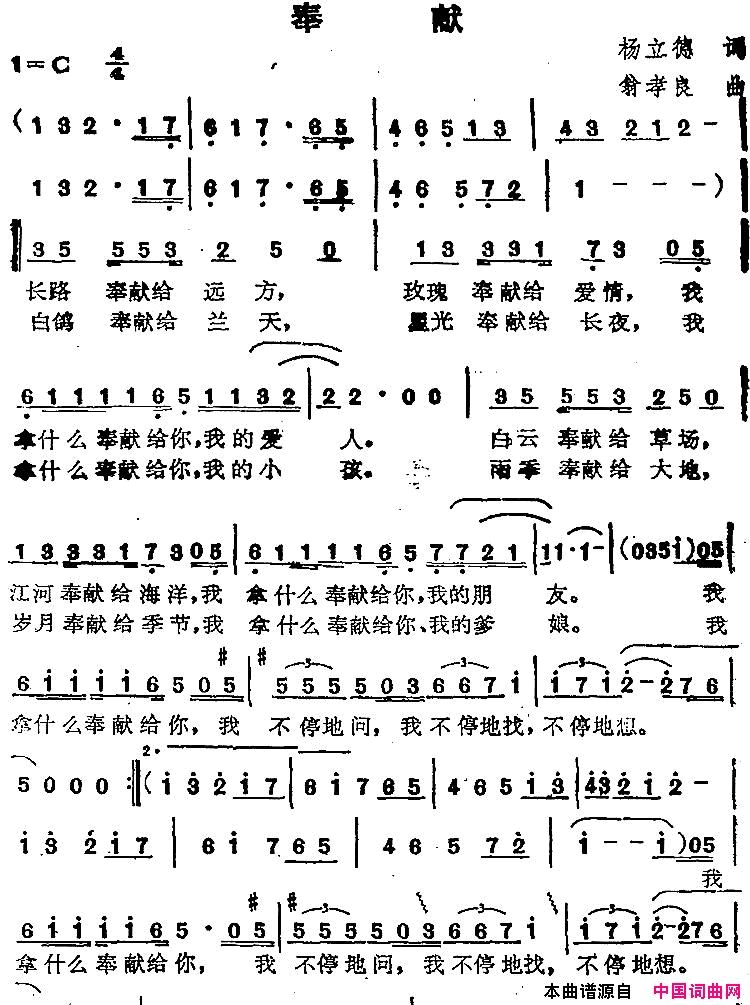 奉 献
杨立德 词
1=C 4/4
翁孝良 曲
(1 3 2 · 1 7 | 6 1 7 · 6 5 | 4 6 5 1 3 | 4 3 2 1 2 – |
1 3 2 · 1 7 | 6 1 7 · 6 5 | 4 6 5 7 2 | 1 – – – )
3 5 5 5 3 2 5 0 | 1 3 3 3 1 7 3 0 5 |
长路 奉献给 远 方, 玫瑰 奉献给 爱情, 我
白鸽 奉献给 兰 天, 星光 奉献给 长夜, 我
6 1 1 1 1 6 5 1 1 3 2 | 2 2 · 0 0 | 3 5 5 5 3 2 5 0
拿什么奉献给你,我的爱 人。 白云 奉献给 草场,
拿什么奉献给你,我的小 孩。 雨季 奉献给 大地,
1 3 3 3 1 7 3 0 5 | 6 1 1 1 1 6 5 7 7 2 1 | 1 1 · 1 – | (0 3 5 1) 0 5
江河奉献给海洋,我 拿什么奉献给你,我的朋 友。 我
岁月奉献给季节,我 拿什么奉献给你、我的爹 娘。 我
6 1 1 1 1 6 5 0 5 | #5 5 5 5 0 3 6 6 7 1 | 1 7 1 2 – 2 7 6
拿什么奉献给你, 我 不停地问, 我不停地找, 不停地想。
5 0 0 0 :‖ 2. (1 3 2 1 7 | 6 1 7 6 5 | 4 6 5 1 3 | 4 3 2 1 2 –
1 3 2 1 7 | 6 1 7 6 5 | 4 6 5 7 2 | 1 – – 1) 0 5
我
6 1 1 1 1 6 5 · 0 5 | #5 5 5 5 0 3 6 6 7 1 | 1 7 1 2 – 2 7 6
拿什么奉献给你, 我 不停地问, 我不停地找, 不停地想。
本曲谱源自 中国词曲网